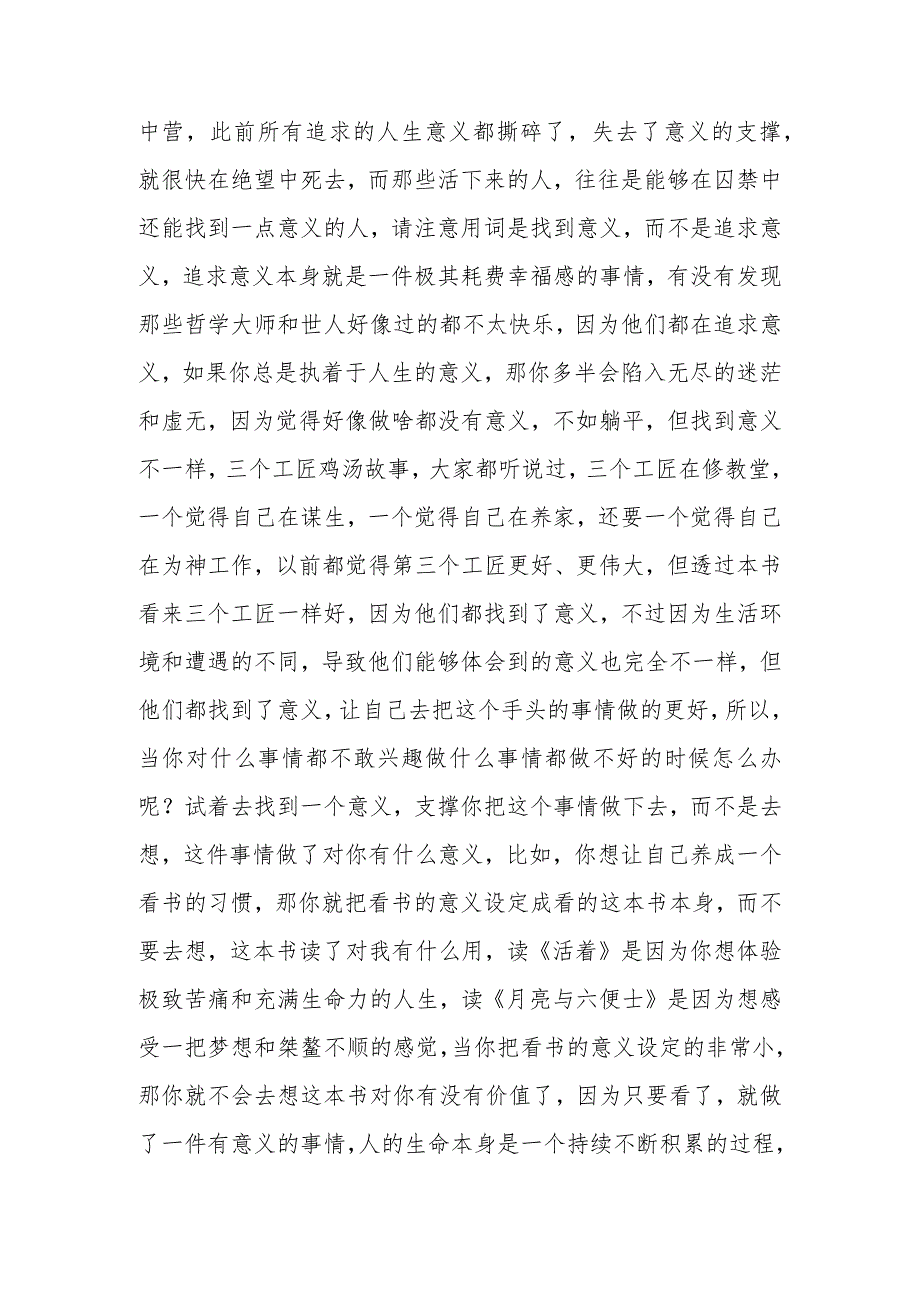 中营，此前所有追求的人生意义都撕碎了，失去了意义的支撑，
就很快在绝望中死去，而那些活下来的人，往往是能够在囚禁中
还能找到一点意义的人，请注意用词是找到意义，而不是追求意
义，追求意义本身就是一件极其耗费幸福感的事情，有没有发现
那些哲学大师和世人好像过的都不太快乐，因为他们都在追求意
义，如果你总是执着于人生的意义，那你多半会陷入无尽的迷茫
和虚无，因为觉得好像做啥都没有意义，不如躺平，但找到意义
不一样，三个工匠鸡汤故事，大家都听说过，三个工匠在修教堂，
一个觉得自己在谋生，一个觉得自己在养家，还要一个觉得自己
在为神工作，以前都觉得第三个工匠更好、更伟大，但透过本书
看来三个工匠一样好，因为他们都找到了意义，不过因为生活环
境和遭遇的不同，导致他们能够体会到的意义也完全不一样，但
他们都找到了意义，让自己去把这个手头的事情做的更好，所以，
当你对什么事情都不敢兴趣做什么事情都做不好的时候怎么办
呢？试着去找到一个意义，支撑你把这个事情做下去，而不是去
想，这件事情做了对你有什么意义，比如，你想让自己养成一个
看书的习惯，那你就把看书的意义设定成看的这本书本身，而不
要去想，这本书读了对我有什么用，读《活着》是因为你想体验
极致苦痛和充满生命力的人生，读《月亮与六便士》是因为想感
受一把梦想和桀鳌不顺的感觉，当你把看书的意义设定的非常小，
那你就不会去想这本书对你有没有价值了，因为只要看了，就做
了一件有意义的事情，人的生命本身是一个持续不断积累的过程，